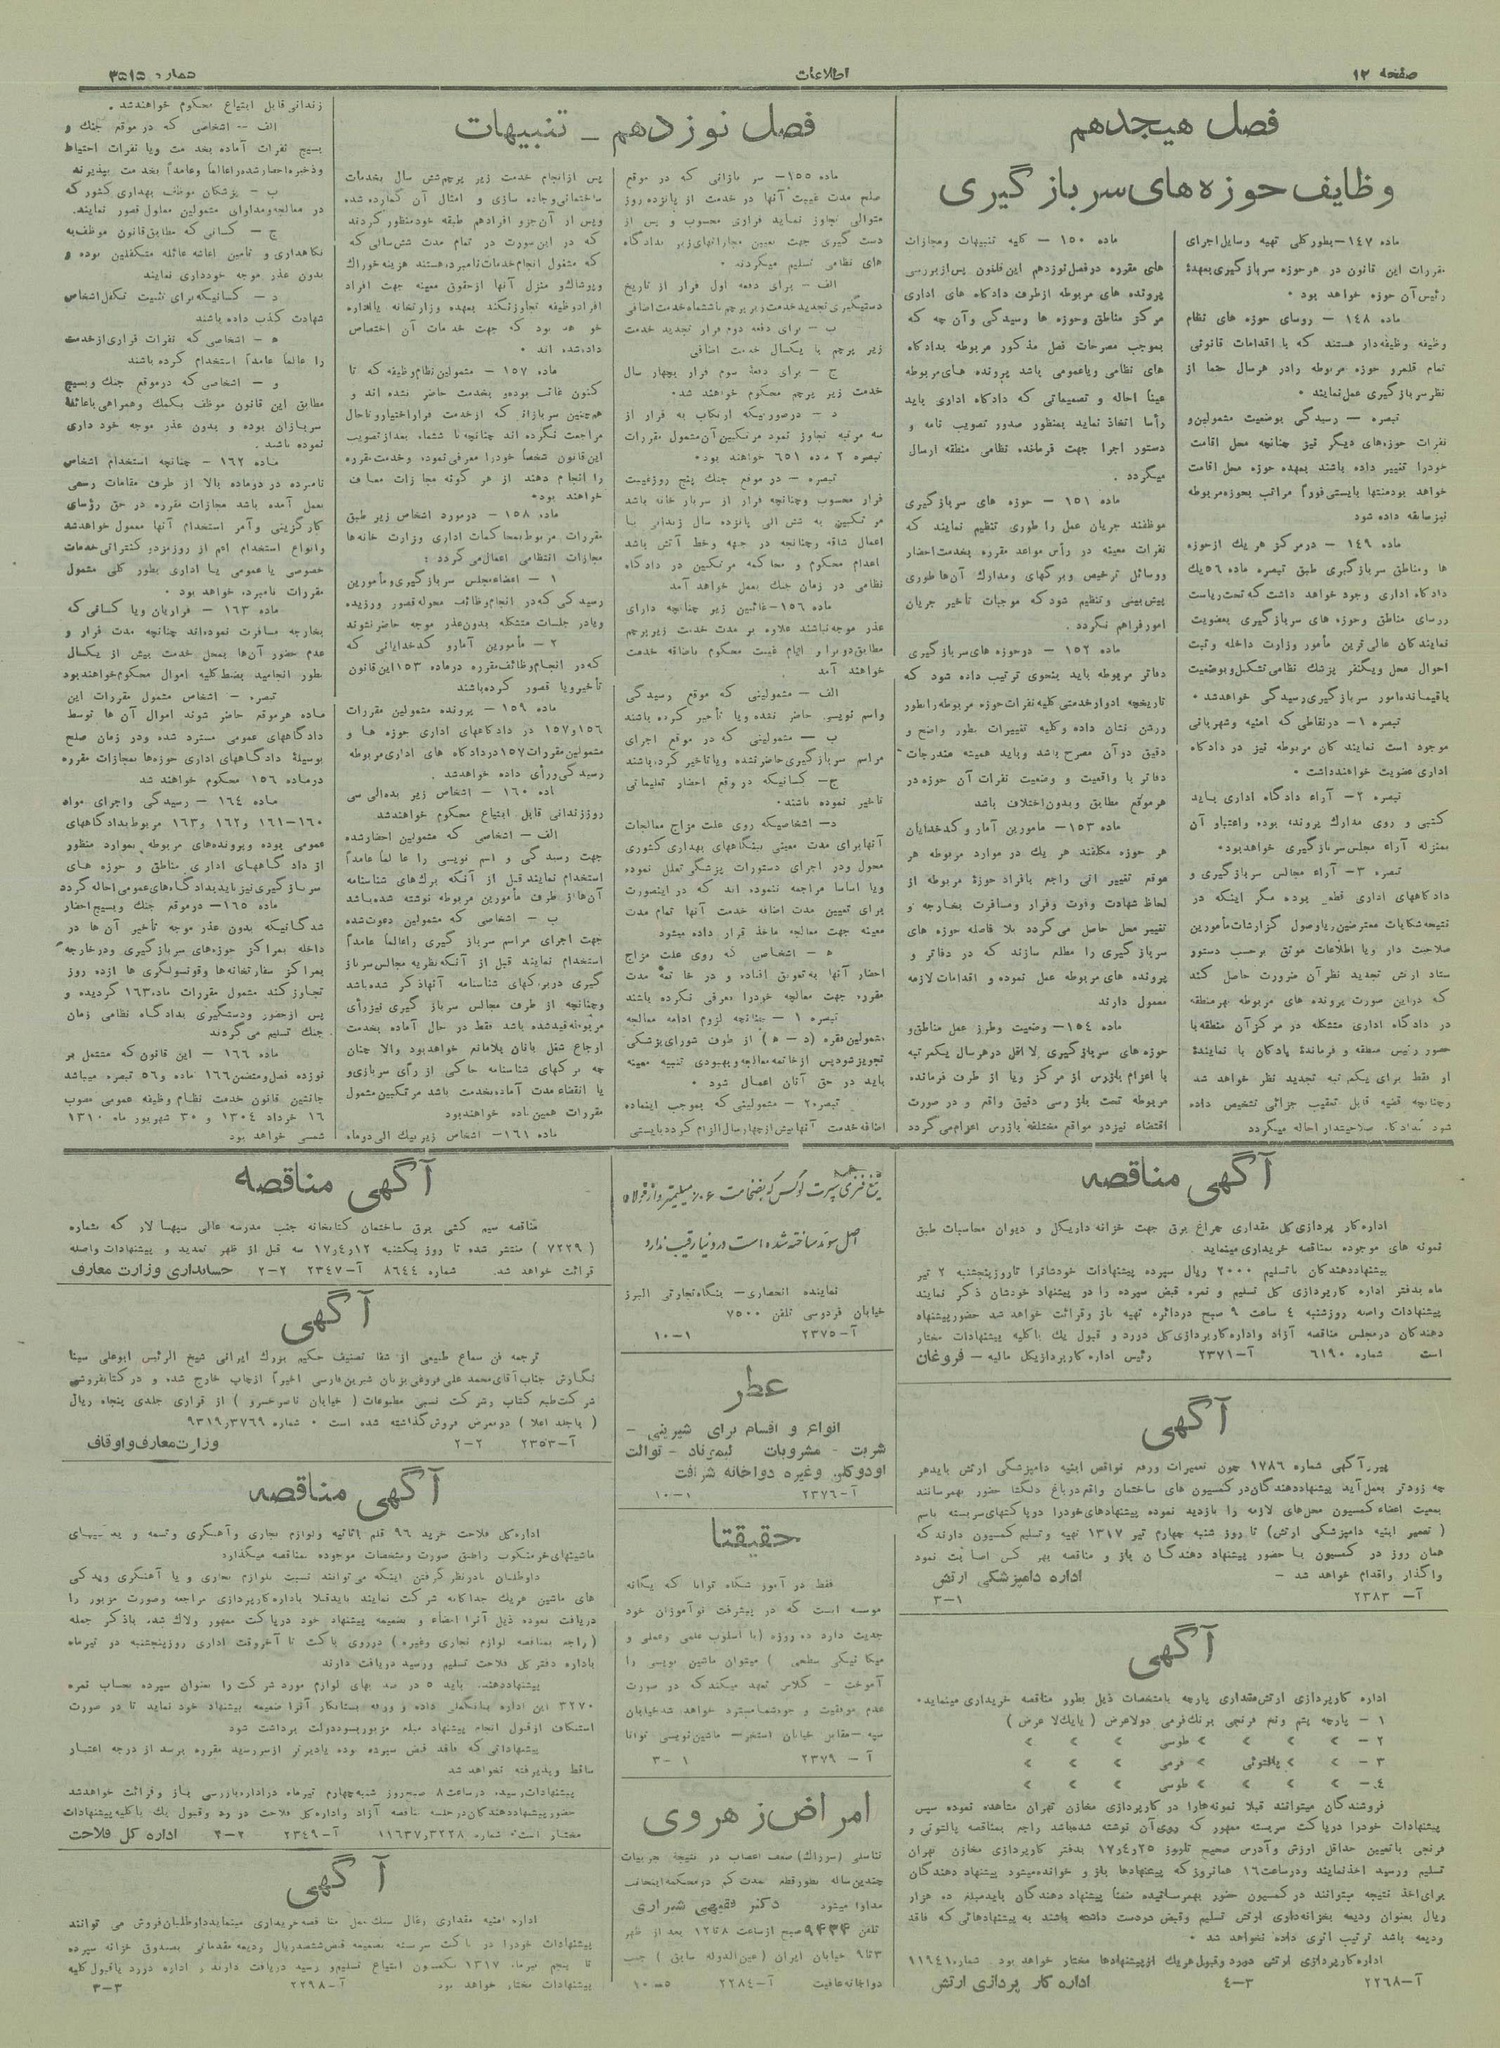 صفحه ۱۲
اطلاعات
شماره ۳۵۱۵
فصل هیجدهم
وظایف حوزه‌های سربازگیری
ماده ۱۴۷- بطور کلی تهیه وسایل اجرای
مقررات این قانون در هر حوزه سربازگیری بعهدهٔ
رئیس آن حوزه خواهد بود.
ماده ۱۴۸ - روسای حوزه های نظام
وظیفه وظیفه‌دار هستند که با اقدامات قانونی
تمام قلمرو حوزه مربوطه را در هر سال حتما از
نظر سربازگیری عمل نمایند.
تبصره - رسیدگی بوضعیت مشمولین و
نفرات حوزه‌های دیگر نیز چنانچه محل اقامت
خود را تغییر داده باشند بعهده حوزه محل اقامت
خواهد بود منتها بایستی فوراً مراتب بحوزه مربوطه
نیز سابقه داده شود
ماده ۱۴۹ - در مرکز هر یك از حوزه
ها و مناطق سربازگیری طبق تبصره ماده ۵۶ یك
دادگاه اداری وجود خواهد داشت که تحت ریاست
رؤسای مناطق و حوزه های سربازگیری بعضویت
نمایندگان عالی‌ترین مأمور وزارت داخله و ثبت
احوال محل و یکنفر پزشك نظامی تشکیل و بوضعیت
باقیمانده امور سربازگیری رسیدگی خواهد شد.
تبصره ۱- در نقاطی که امنیه و شهربانی
موجود است نمایندگان مربوطه نیز در دادگاه
اداری عضویت خواهند داشت.
تبصره ۲- آراء دادگاه اداری باید
کتبی و روی مدارك پرونده بوده و اعتبار آن
بمنزله آراء مجلس سربازگیری خواهد بود.
تبصره ۳- آراء مجالس سربازگیری و
دادگاههای اداری قطعی بوده مگر اینکه در
نتیجه شکایات معترضین یا وصول گزارشات مأمورین
صلاحیت دار و یا اطلاعات موثق برحسب دستور
ستاد ارتش تجدید نظر آن ضرورت حاصل کند
که در این صورت پرونده های مربوطه بهر منطقه
در دادگاه اداری متشکله در مرکز آن منطقه با
حضور رئیس منطقه و فرماندهٔ پادگان یا نمایندهٔ
او فقط برای یکمرتبه تجدید نظر خواهد شد
و چنانچه قضیه قابل تعقیب جزائی تشخیص داده
شود بدادگاه صلاحیتدار احاله میگردد
ماده ۱۵۰ - کلیه تنبیهات و مجازات
های مقرره در فصل نوزدهم این قانون پس از بررسی
پرونده های مربوطه از طرف دادگاه های اداری
مرکز مناطق و حوزه ها رسیدگی و آن چه که
بموجب مصرحات فصل مذکور مربوطه بدادگاه
های نظامی و یا عمومی باشد پرونده های مربوطه
عیناً احاله و تصمیماتی که دادگاه اداری باید
رأسا اتخاذ نماید بمنظور صدور تصویب نامه و
دستور اجرا جهت فرمانده نظامی منطقه ارسال
میگردد.
ماده ۱۵۱ - حوزه های سربازگیری
موظفند جریان عمل را طوری تنظیم نمایند که
نفرات معینه در رأس مواعد مقرره بخدمت احضار
و وسائل ترخیص و برگهای و مدارك آن‌ها طوری
پیش‌بینی و تنظیم شود که موجبات تأخیر جریان
امور فراهم نگردد.
ماده ۱۵۲ - در حوزه های سربازگیری
دفاتر مربوطه باید بنحوی ترتیب داده شود که
تاریخچه ادوار خدمتی کلیه نفرات حوزه مربوطه را بطور
روشن نشان داده و کلیه تغییرات بطور واضح و
دقیق در آن مصرح باشد و باید همیشه مندرجات
دفاتر با واقعیت و وضعیت نفرات آن حوزه در
هر موقع مطابق و بدون اختلاف باشد
ماده ۱۵۳- مأمورین آمار و کدخدایان
هر حوزه مکلفند هر یك در موارد مربوطه هر
موقع تغییر اتی راجع بافراد حوزهٔ مربوطه از
لحاظ شهادت و فوت و فرار و مسافرت بخارجه و
تغییر محل حاصل می‌گردد بلا فاصله حوزه های
سربازگیری را مطلع سازند که در دفاتر و
پرونده های مربوطه عمل نموده و اقدامات لازمه
معمول دارند
ماده ۱۵۴- وضعیت و طرز عمل مناطق و
حوزه های سربازگیری لااقل در هر سال یکمرتبه
با اعزام بازرس از مرکز و یا از طرف فرمانده
مربوطه تحت بازرسی دقیق واقع و در صورت
اقتضاء نیز در مواقع مختلفه بازرس اعزام می‌گردد
فصل نوزدهم - تنبیهات
ماده ۱۵۵- سربازانی که در موقع
صلح مدت غیبت آنها در خدمت از پانزده روز
متوالی تجاوز نماید فراری محسوب و پس از
دستگیری جهت تعیین مجازاتهای زیر بدادگاه
های نظامی تسلیم میگردند.
الف- برای دفعه اول فرار از تاریخ
دستگیری تجدید خدمت زیر پرچم با ششماه خدمت اضافی
ب - برای دفعه دوم فرار تجدید خدمت
زیر پرچم با یکسال خدمت اضافی
ج - برای دفعهٔ سوم فرار بچهار سال
خدمت زیر پرچم محکوم خواهند شد.
د - در صورتیکه ارتکاب به فرار از
سه مرتبه تجاوز نمود مرتکبین آن مشمول مقررات
تبصره ۲ ماده ۶۵۱ خواهند بود.
تبصره - در موقع جنك پنج روز غیبت
فرار محسوب و چنانچه فرار از سرباز خانه باشد
مرتکبین به شش الی پانزده سال زندان با
اعمال شاقه و چنانچه در جبهه و خط آتش باشد
اعدام محکوم و محاکمه مرتکبین در دادگاه
نظامی در زمان جنك بعمل خواهد آمد
ماده ۱۵۶- غائبین زیر چنانچه دارای
عذر موجه نباشند علاوه بر مدت خدمت زیر پرچم
مطابق دو برابر ایام غیبت محکوم باضافه خدمت
خواهند آمد
الف - مشمولینی که موقع رسیدگی
و اسم نویسی حاضر نشده و یا تأخیر کرده باشند
ب - مشمولینی که در موقع اجرای
مراسم سربازگیری حاضر نشده و یا تاخیر کرده باشند
ج- کسانیکه در وقع احضار تعلیماتی
تاخیر نموده باشند.
د- اشخاصیکه روی علت مزاج معالجات
آنها برای مدت معینی ببنگاههای بهداری کشوری
محول و در اجرای دستورات پزشکی تعلل نموده
و یا اساسا مراجعه ننموده اند که در اینصورت
برای تعیین مدت اضافه خدمت آنها تمام مدت
معینه جهت معالجه ماخذ قرار داده میشود
ه - اشخاصی که روی علت مزاج
احضار آنها به تعویق افتاده و در خاتمه مدت
مقرره جهت معالجه خود را معرفی نکرده باشند
تبصره ۱ - چنانچه لزوم ادامه معالجه
مشمولین فقره (د - ه) از طرف شورای پزشکی
تجویز شود پس از خاتمه معالجه و بهبودی تنبیه معینه
باید در حق آنان اعمال شود.
تبصره ۲- مشمولینی که بموجب اینماده
اضافه خدمت آنها بیش از چهار سال الزام گردد بایستی
پس از انجام خدمت زیر پرچم شش سال بخدمات
ساختمانی و جاده سازی و امثال آن گمارده شده
و پس از آن جزو افراد هم طبقه خود منظور گردند
که در این صورت در تمام مدت شش سالی که
که مشغول انجام خدمات نامبرده هستند هزینه خوراك
و پوشاك و منزل آنها از حقوق معینه جهت افراد
افراد وظیفه تجاوز نکند بعهده وزارتخانه یا اداره
خواهد بود که جهت خدمات آن اختصاص
داده شده اند.
ماده ۱۵۷ - مشمولین نظام وظیفه که تا
کنون غائب بوده و بخدمت حاضر نشده اند و
همچنین سربازانی که از خدمت فرار اختیار و تا حال
مراجعت نکرده اند چنانچه تا ششماه بعد از تصویب
این قانون شخصاً خود را معرفی نموده و خدمت مقرره
را انجام دهند از هر گونه مجازات معاف
خواهند بود.
ماده ۱۵۸ - در مورد اشخاص زیر طبق
مقررات مربوط بمحاکمات اداری وزارت خانه‌ها
مجازات انتظامی اعمال می‌گردد:
۱ - اعضاء مجلس سربازگیری و مأمورین
رسیدگی که در انجام وظائف محوله قصور ورزیده
و یا در جلسات متشکله بدون عذر موجه حاضر نشوند
۲ - مأمورین آمار و کدخدایانی که
که در انجام وظائف مقرره در ماده ۱۵۳ این قانون
تأخیر و یا قصور کرده باشند
ماده ۱۵۹ - پرونده مشمولین مقررات
۱۵۶ و ۱۵۷ در دادگاههای اداری حوزه ها و
مشمولین مقررات ۱۵۷ در دادگاه های اداری مربوطه
رسیدگی و رأی داده خواهد شد.
ماده ۱۶۰ - اشخاص زیر بده الی سی
روز زندانی قابل ابتیاع محکوم خواهند شد
الف - اشخاصی که مشمولین احضار شده
جهت رسیدگی و اسم نویسی را عالماً عامداً
استخدام نمایند قبل از آنکه برك‌های شناسنامه
آن‌ها از طرف مأمورین مربوطه نوشته شده باشد
ب - اشخاصی که مشمولین دعوت شده
جهت اجرای مراسم سربازگیری را عالماً عامداً
استخدام نمایند قبل از آنکه نظریه مجالس سرباز
گیری در برگهای شناسنامه آنها ذکر شده باشد
و چنانچه از طرف مجالس سربازگیری نیز رأی
مربوطه قید شده باشد فقط در حال آماده بخدمت
ارجاع شغل بآنان بلامانع خواهد بود والا چنان
چه برگهای شناسنامه حاکی از رأی سربازی و
یا انقضاء مدت آماده بخدمت باشد مرتکبین مشمول
مقررات همین ماده خواهند بود
ماده ۱۶۱- اشخاص زیر بیك الی دو ماه
زندانی قابل ابتیاع محکوم خواهند شد.
الف - اشخاصی که در موقع جنك و
بسیج نفرات آماده بخدمت و یا نفرات احتیاط
و ذخیره احضار شده را عالماً و عامداً بخدمت بپذیرند
ب - پزشکان موظف بهداری کشور که
در معالجه و مداوای مشمولین معلول قصور نمایند.
ج - کسانی که مطابق قانون موظف به
نگاهداری و تأمین اعاشه عائله متکفلین بوده و
بدون عذر موجه خودداری نمایند
د - کسانیکه برای تثبیت تکفل اشخاص
شهادت کذب داده باشند
ه - اشخاصی که نفرات فراری از خدمت
را عالماً عامداً استخدام کرده باشند
و - اشخاصی که در موقع جنك و بسیج
مطابق این قانون موظف بکمك و همراهی با عائلهٔ
سربازان بوده و بدون عذر موجه خودداری
نموده باشد.
ماده ۱۶۲ - چنانچه استخدام اشخاص
نامبرده در دو ماده بالا از طرف مقامات رسمی
بعمل آمده باشد مجازات مقرره در حق رؤسای
کارگزینی و آمر استخدام آنها معمول خواهد شد
و انواع استخدام اعم از روزمزد، کنتراتی خدمات
خصوصی یا عمومی یا اداری بطور کلی مشمول
مقررات نامبرده خواهد بود.
ماده ۱۶۳ - فراریان و یا کسانی که
بخارجه مسافرت نموده‌اند چنانچه مدت فرار و
عدم حضور آن‌ها بمحل خدمت بیش از یکسال
بطور انجامید بضبط کلیه اموال محکوم خواهند بود
تبصره - اشخاص مشمول مقررات این
ماده هر موقع حاضر شوند اموال آن ها توسط
دادگاههای عمومی مسترد شده و در زمان صلح
بوسیلهٔ دادگاههای اداری حوزه‌ها بمجازات مقرره
در ماده ۱۵۶ محکوم خواهند شد
ماده ۱۶۴ - رسیدگی و اجرای مواد
۱۶۰-۱۶۱ و ۱۶۲ و ۱۶۳ مربوط بدادگاههای
عمومی بوده و پرونده‌های مربوطه بموارد منظور
از دادگاههای اداری مناطق و حوزه های
سربازگیری نیز باید بدادگاه‌های عمومی احاله گردد
ماده ۱۶۵- در موقع جنك و بسیج احضار
شدگانیکه بدون عذر موجه تأخیر آن ها در
داخله بمراکز حوزه‌های سربازگیری و در خارجه
بمراکز سفارتخانه‌ها و قونسولگری ها از ده روز
تجاوز کند مشمول مقررات ماده ۱۶۳ گردیده و
پس از حضور و دستگیری بدادگاه نظامی زمان
جنك تسلیم می‌گردند
ماده ۱۶۶ - این قانون که مشتمل بر
نوزده فصل و متضمن ۱۶۶ ماده و ۵۶ تبصره میباشد
جانشین قانون خدمت نظام وظیفه عمومی مصوب
۱۶ خرداد ۱۳۰۴ و ۳۰ شهریور ماه ۱۳۱۰
شمسی خواهد بود
آگهی مناقصه
اداره کار پردازی کل مقداری چراغ برق جهت خزانه داریکل و دیوان محاسبات طبق
نمونه های موجوده بمناقصه خریداری مینماید.
پیشنهاددهندگان با تسلیم ۲۰۰۰ ریال سپرده پیشنهادات خودشانرا تا روز پنجشنبه ۲ تیر
ماه بدفتر اداره کارپردازی کل تسلیم و نمره قبض سپرده را در پیشنهاد خودشان ذکر نمایند
پیشنهادات واصله روز شنبه ۴ ساعت ۹ صبح در دائره تهیه باز و قرائت خواهد شد حضور پیشنهاد
دهندگان در مجلس مناقصه آزاد و اداره کارپردازی کل در رد و قبول یك یا کلیه پیشنهادات مختار
است شماره ۶۱۹۰ آ-۲۳۷۱ رئیس اداره کارپردازی کل مالیه - فروغان
آگهی
پیرو آگهی شماره ۱۷۸۶ چون تعمیرات و رفع نواقص ابنیه دامپزشکی ارتش باید هر
چه زودتر بعمل آید پیشنهاد دهندگان در کمسیون های ساختمان واقع در باغ دلگشا حضور بهمرسانند
بمعیت اعضاء کمسیون محل‌های لازمه را بازدید نموده پیشنهادهای خود را در پاکتهای سربسته باسم
(تعمیر ابنیه دامپزشکی ارتش) تا روز شنبه چهارم تیر ۱۳۱۷ تهیه و تسلیم کمسیون دارند که
همان روز در کمسیون با حضور پیشنهاد دهندگان باز و مناقصه بهر کس اصابت نمود
واگذار و اقدام خواهد شد - اداره دامپزشکی ارتش
آ- ۲۳۸۳ ۳-۱
آگهی
اداره کارپردازی ارتش مقداری پارچه بامشخصات ذیل بطور مناقصه خریداری مینماید.
۱ - پارچه پشم و نخ فرنجی برنك فرمی دولاعرض (یا یك لا عرض)
۲ - » » » » طوسی » » »
۳ - » » » پالتوئی » فرمی » » »
۴ - » » » » طوسی » » »
فروشندگان میتوانند قبلا نمونه‌ها را در کارپردازی مخازن تهران مشاهده نموده سپس
پیشنهادات خود را در پاکت سربسته ممهور که روی آن نوشته شده باشد راجع بمناقصه پالتوئی و
فرنجی با تعیین حداقل ارزش و آدرس صحیح تا روز ۲۵ر۴ر۱۷ بدفتر کارپردازی مخازن تهران
تسلیم و رسید اخذ نمایند و در ساعت ۱۶ همانروز که پیشنهادها باز و خوانده میشود پیشنهاد دهندگان
برای اخذ نتیجه میتوانند در کمسیون حضور بهمرسانیده ضمناً پیشنهاد دهندگان باید مبلغ ده هزار
ریال بعنوان ودیعه بخزانه‌داری ارتش تسلیم و قبض در دست داشته باشند به پیشنهادهائی که فاقد
ودیعه باشد ترتیب اثری داده نخواهد شد.
اداره کارپردازی ارتش در رد و قبول هر یك از پیشنهادها مختار خواهد بود. شماره ۱۱۹۴۱
آ-۲۲۶۸ ۴-۳ اداره کار پردازی ارتش
تیغ فنری سپرت لوکس که بضخامت ۰/۰۶ میلیمتر و از فولاد
اصل سوئد ساخته شده است در دنیا رقیب ندارد
نماینده انحصاری- بنگاه تجارتی البرز
خیابان فردوسی تلفن ۷۵۰۰
آ-۲۳۷۵ ۱۰-۱
عطر
انواع و اقسام برای شیرینی -
شربت - مشروبات - لیموناد - توالت
اودوکلن وغیره دواخانه شرافت
آ-۲۳۷۶ ۱۰-۱
حقیقتا
فقط در آموزشگاه توانا که یگانه
موسسه است که در پیشرفت نوآموزان خود
جدیت دارد ده روزه (با اسلوب علمی و عملی و
میکانیکی سطحی) میتوان ماشین نویسی را
آموخت - کلاس تعهد میکند که در صورت
عدم موفقیت و جوه شما مسترد خواهد شد خیابان
سپه - مقابل خیابان استخر - ماشین نویسی توانا
آ - ۲۳۷۹ ۳-۱
امراض زهروی
تناسلی (سوزاك) ضعف اعصاب در نتیجه تجربیات
چندین ساله بطور قطع بمدت کم در محکمه اینجانب
مداوا میشود دکتر فقیهی شیرازی
تلفن ۹۴۳۴ صبح از ساعت ۸ تا ۱۲ بعد از ظهر
۳ تا ۹ خیابان ایران (عین‌الدوله سابق) جنب
دواخانه عافیت آ-۲۲۸۴ ۱۰-۵
آگهی مناقصه
مناقصه سیم کشی برق ساختمان کتابخانه جنب مدرسه عالی سپهسالار که بشماره
(۷۲۲۹) منتشر شده تا روز یکشنبه ۱۲ر۴ر۱۷ سه قبل از ظهر تمدید و پیشنهادات واصله
قرائت خواهد شد. شماره ۸۶۴۴ آ-۲۳۴۷ ۲-۲ حسابداری وزارت معارف
آگهی
ترجمه فن سماع طبیعی از شفا تصنیف حکیم بزرك ایرانی شیخ الرئیس ابوعلی سینا
نگارش جناب آقای محمد علی فروغی بزبان شیرین فارسی اخیراً از چاپ خارج شده و در کتابفروشی
شرکت طبع کتاب و شرکت نسبی مطبوعات (خیابان ناصرخسرو) از قراری جلدی پنجاه ریال
(با جلد اعلا) در معرض فروش گذاشته شده است. شماره ۳۷۶۹ر۹۳۱۹
آ-۲۳۵۳ ۲-۲ وزارت معارف و اوقاف
آگهی مناقصه
اداره کل فلاحت خرید ۹۶ قلم اثاثیه و لوازم نجاری و آهنگری و تسمه و یدکیهای
ماشینهای خرمنکوب را طبق صورت و مشخصات موجوده بمناقصه میگذارد
داوطلبان با در نظر گرفتن اینکه می‌توانند نسبت بلوازم نجاری و یا آهنگری و یدکی
های ماشین هر یك جداگانه شرکت نمایند باید قبلا باداره کارپردازی مراجعه و صورت مزبور را
دریافت نموده ذیل آنرا امضاء و بضمیمه پیشنهاد خود در پاکت ممهور و لاك شده با ذکر جمله
(راجع بمناقصه لوازم نجاری وغیره) در روی پاکت تا آخر وقت اداری روز پنجشنبه دو تیر ماه
باداره دفتر کل فلاحت تسلیم و رسید دریافت دارند
پیشنهاد دهنده باید ۵ در صد بهای لوازم مورد شرکت را بعنوان سپرده بحساب نمره
۳۲۷۰ این اداره ببانك ملی داده و ورقه بستانکار آنرا ضمیمه پیشنهاد خود نماید تا در صورت
استنکاف از قبول انجام پیشنهاد مبلغ مزبور بسود دولت برداشت شود
پیشنهاداتی که فاقد قبض سپرده بوده یا دیرتر از سررسید مقرره برسد از درجه اعتبار
ساقط و پذیرفته نخواهد شد
پیشنهادات رسیده در ساعت ۸ صبح روز شنبه چهارم تیر ماه در اداره بازرسی باز و قرائت خواهد شد
حضور پیشنهاد دهندگان در جلسه مناقصه آزاد و اداره کل فلاحت در رد و قبول یك یا کلیه پیشنهادات
مختار است. شماره ۳۲۲۸ر۱۱۶۳۷ آ-۲۳۴۹ ۴-۲ اداره کل فلاحت
آگهی
اداره امنیه مقداری زغال سنك بمناقصه خریداری مینماید داوطلبان فروش می توانند
پیشنهادات خود را در پاکت سربسته بضمیمه قبض ششصد ریال ودیعه مقدماتی بصندوق خزانه سپرده
تا پنجم تیر ماه ۱۳۱۷ بکمسیون ابتیاع تسلیم و رسید دریافت دارند و اداره در رد یا قبول کلیه
پیشنهادات مختار خواهد بود آ-۲۲۹۸ ۳-۳